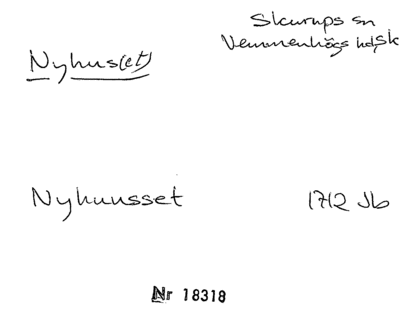 Skurups sn
Vemmenhögs hd, Sk
Nyhus(et)
Nyhuusset 1712 Jb
Nr 18318